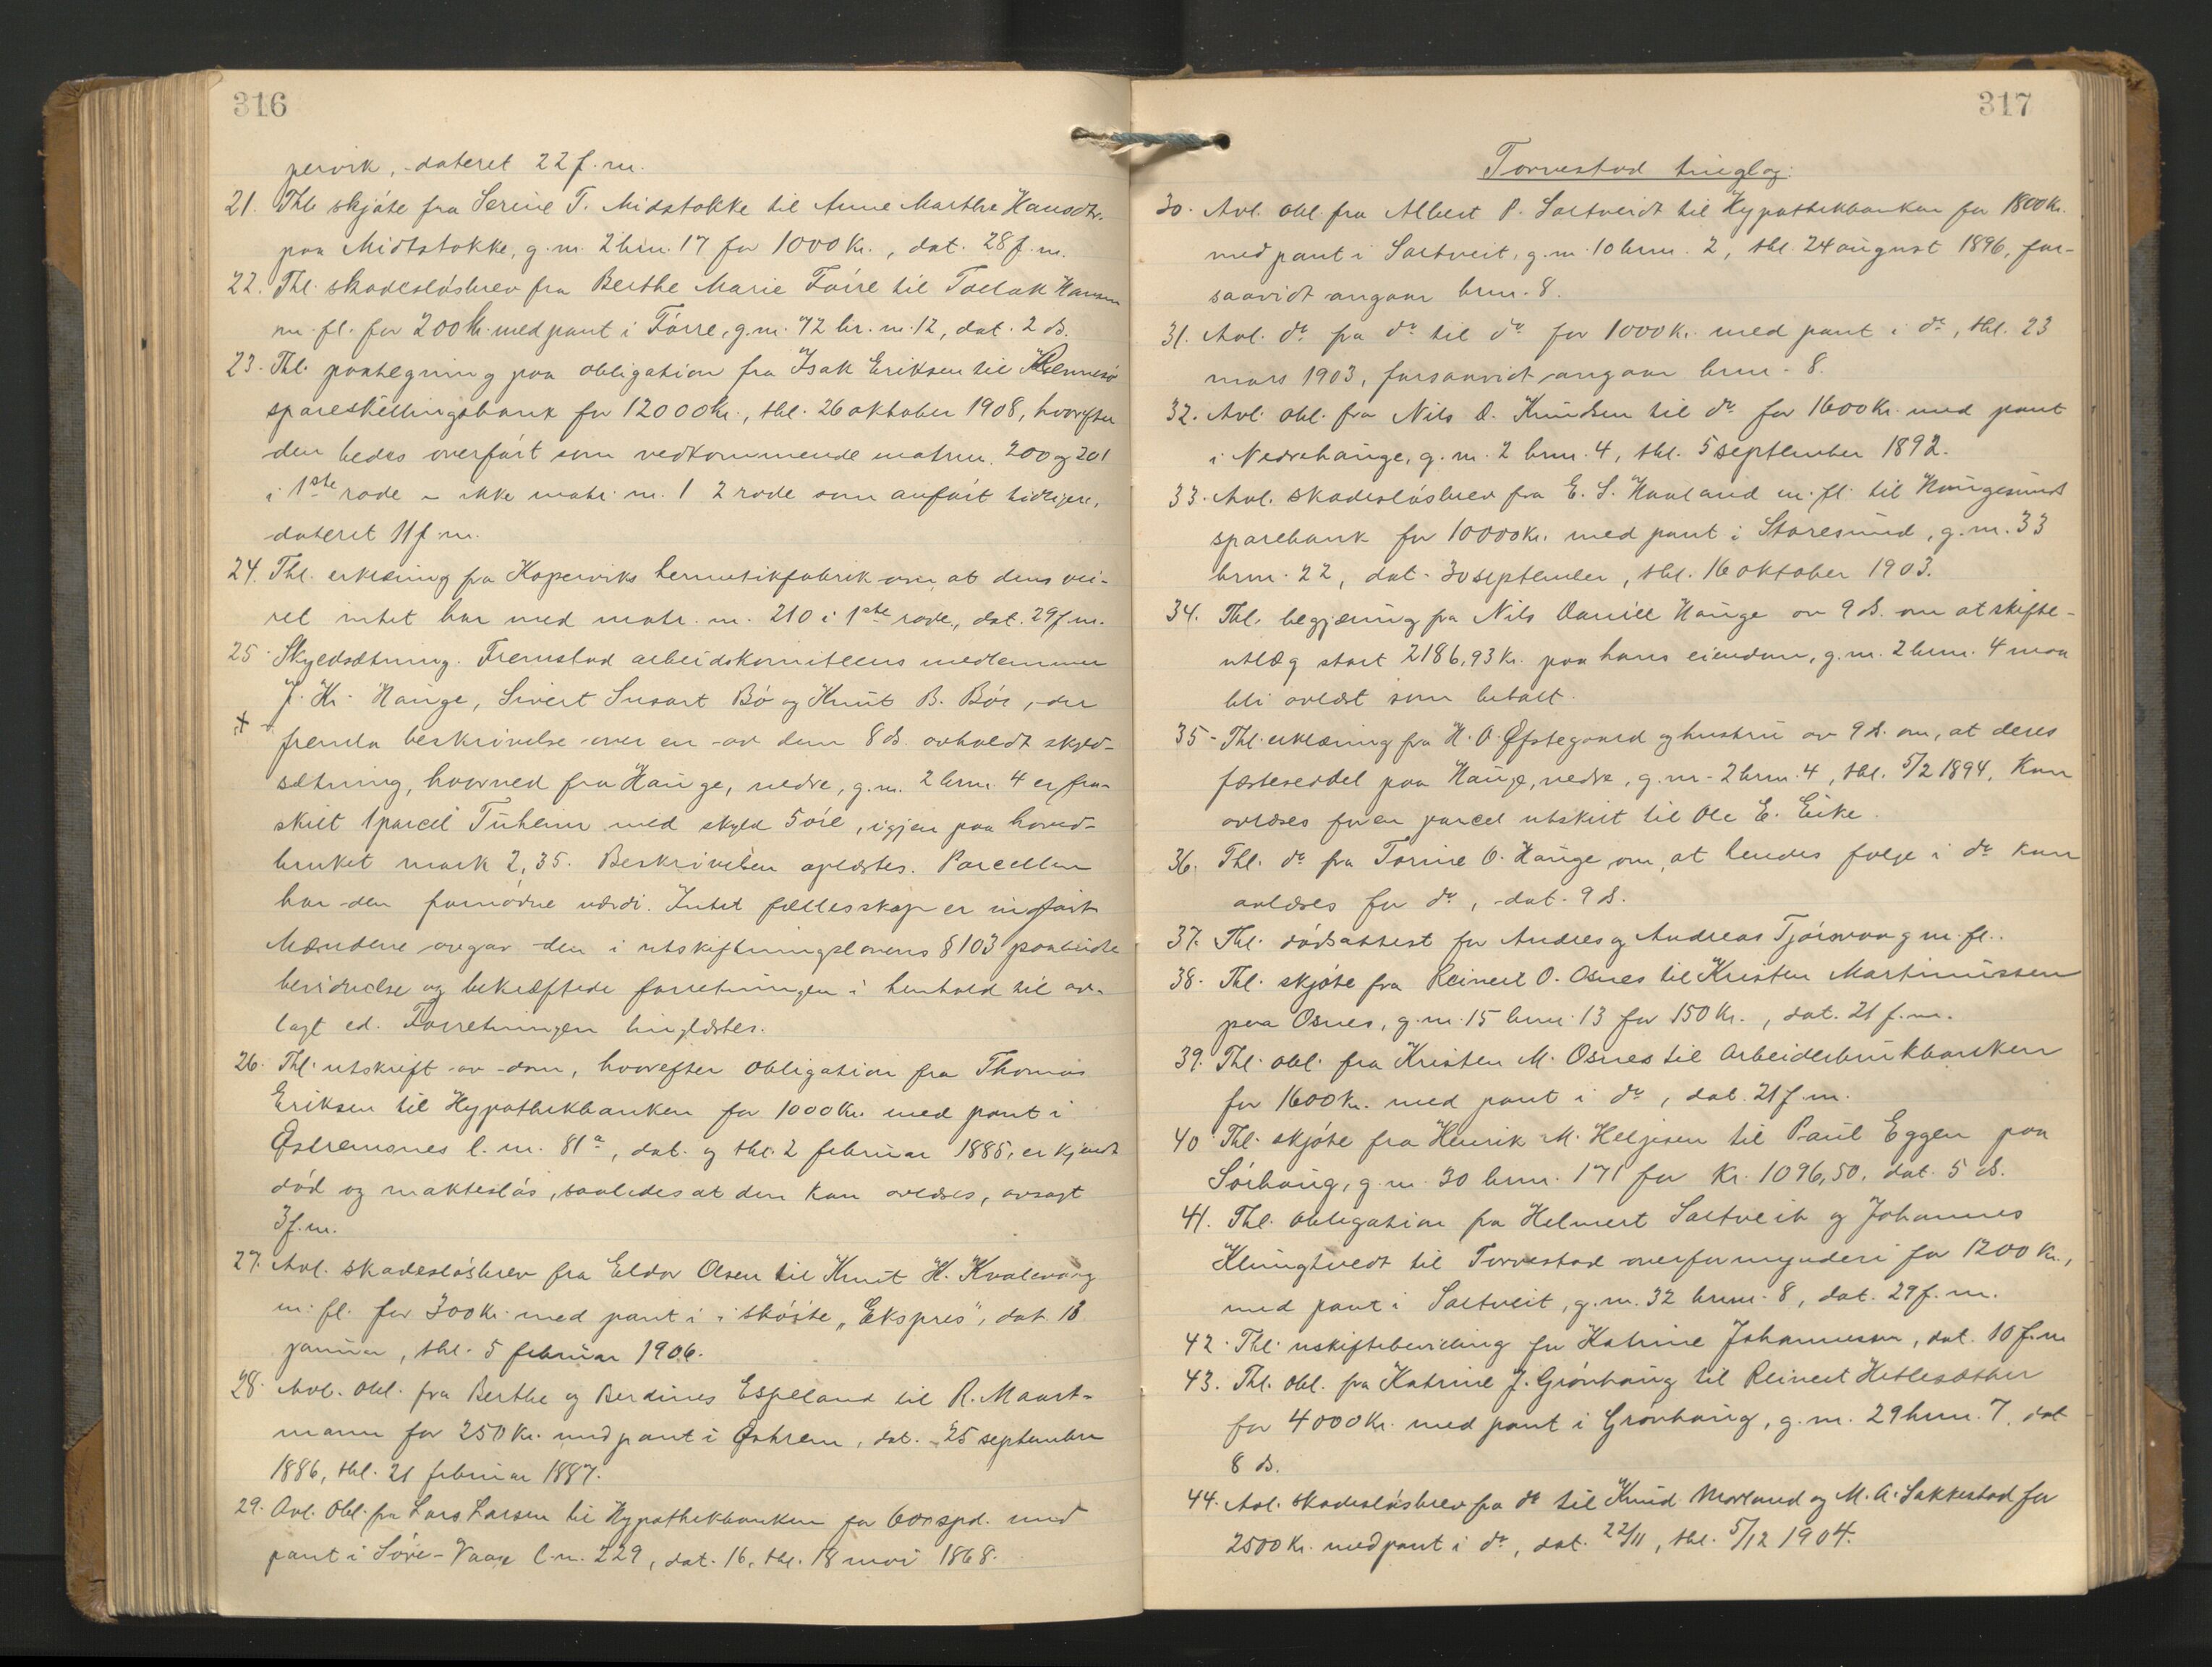 316
pervik, dateret 22 f.m.
21. Thl. skjøte fra Serine T. Midstokke til Anne Marthe Hansdtr.
paa Midtstokke, g.nr. 2 brn. 17 for 1000 Kr., dat. 28 f.m.
22. Thl. skadesløsbrev fra Berthe Marie Førre til Torlak Hansen
m.fl. for 200 Kr. med pant i Førre, g.nr. 72 br.nr. 12, dat. 2 ds.
23. Thl. paategning paa obligation fra Isak Eriksen til
spareskillingsbank for 12000 Kr., thl. 26 oktober 1908, hvorefter
den bedes overført som vedkommende matrnr. 200 og 201
i 1ste rode – ikke matr. nr. 1 2 rode som anført tidligere,
dateret 11 f.m.
24. Thl. erklæring fra Koperviks hermetikfabrik om at dens vei-
ret intet har med matr. nr. 210 i 1ste rode, dat. 29 f.m.
25. Skyldsætning. Fremstod arbeidskomiteens medlemmer
J. Kr. Hauge, Sivert Susort Bø og Knut B. Bøe, der
fremla beskrivelse over en av dem 8 ds. avholdt skyld-
sætning, hvorved fra Hauge, nedre, g.nr. 2 brn. 4 er fra-
skilt 1 parcel Tuheim med skyld 5 øre, igjen paa hoved-
bruket mark 2,35. Beskrivelsen oplæstes. Parcellen
har den fornødne værdi. Intet fællesskap er indført
Mændene avgav den i utskiftningslovens § 103 paabudte
bevidnelse og bekræftede forretningen i henhold til av-
lagt ed. Forretningen tinglæstes.
26. Thl. utskrift av dom, hvorefter obligation fra Thomas
Eriksen til Hypothekbanken for 1000 Kr. med pant i
Østremsnes l.nr. 81a, dat. og thl. 2 februar 1885, er kjendt
død og magtesløs, saaledes at den kan avlæses, avsagt
3 f.m.
27. Avl. skadesløsbrev fra Eldor Olsen til Knut H. Kvalevaag
m.fl. for 300 Kr. med pant i skøite „Ekspres", dat. 13
januar, thl. 5 februar 1906.
28. Avl. obl. fra Berthe og Berdines Espeland til R. Maart-
mann for 250 Kr. med pant i Østrem, dat. 25 september
1886, thl. 21 februar 1887.
29. Avl. Obl. fra Lars Larsen til Hypothekbanken for 600 spd. med
pant i Søre-Vaage l.nr. 229, dat. 16, thl. 18 mai 1868.
317
Torvestad tinglag:
30. Avl. obl. fra Albert P. Saltveidt til Hypothekbanken for 1800 Kr.
med pant i Saltveit, g.nr. 10 brnr. 2, thl. 24 august 1896, for-
saavidt angaar brnr. 8.
31. Avl. do fra do til do for 1000 Kr. med pant i do, thl. 23
mars 1903, forsaavidt angaar brnr. 8.
32. Avl. obl. fra Nils D. Knudsen til do for 1600 Kr. med pant
i Nedrehauge, g.nr. 2 brnr. 4, thl. 5 september 1892.
33. Avl. skadesløsbrev fra E. S. Havland m.fl. til Haugesunds
sparebank for 10000 Kr. med pant i Storesund, g.nr. 33
brnr. 22, dat. 30 september, thl. 16 oktober 1903.
34. Thl. begjæring fra Nils Daniel Hauge av 9 ds. om at skifte-
utlæg stort 2186,93 Kr. paa hans eiendom, g.nr. 2 brnr. 4 maa
bli avlæst som betalt.
35. Thl. erklæring fra H. O. Øfstegaard og hustru av 9 ds. om, at deres
fæsteseddel paa Hauge, nedre, g.nr. 2 brnr. 4, thl. 5/2 1894, kan
avlæses for en parcel utskilt til Ole E. Eike.
36. Thl. do fra Torine O. Hauge om, at hendes følge i do kan
avlæses for do, dat. 9 ds.
37. Thl. dødsattest for Andres og Andreas Tjøsvoog m.fl.
38. Thl. skjøte fra Reinert O. Osnes til Kristen Martinussen
paa Osnes, g.nr. 15 brnr. 13 for 150 Kr., dat. 21 f.m.
39. Thl. obl. fra Kristen M. Osnes til Arbeiderbrukbanken
for 1600 Kr. med pant i do, dat. 21 f.m.
40. Thl. skjøte fra Henrik M. Helgesen til Paul Eggen paa
Sørhaug, g.nr. 30 brnr. 171 for Kr. 1096,50, dat. 5 ds.
41. Thl. obligation fra Helmert Saltveit og Johannes
Klungtvedt til Torvestad overformynderi for 1200 Kr.,
med pant i Saltveit, g.nr. 32 brnr. 8, dat. 29 f.m.
42. Thl. uskiftebevilling for Katrine Johannessen, dat. 10 f.m.
43. Thl. obl. fra Katrine J. Grønhaug til Reinert Hetlesæther
for 4000 Kr. med pant i Grønhaug, g.nr. 29 brnr. 7, dat
8 ds.
44. Avl. skadesløsbrev fra do til Knud Norland og M. A. Sakkestad for
2500 Kr. med pant i do, dat. 22/11, thl. 5/12 1904.